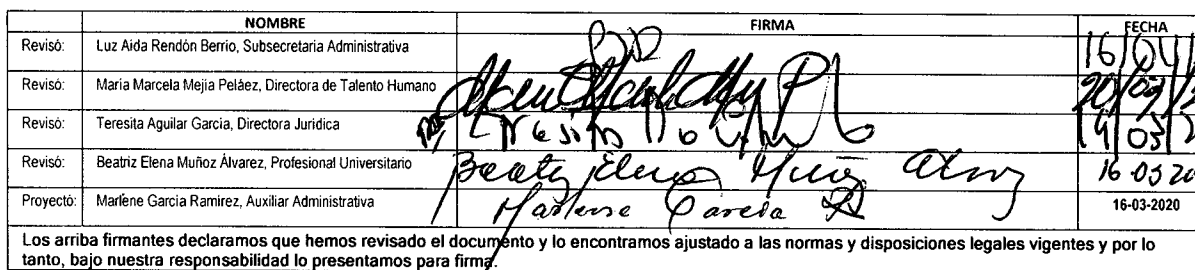 NOMBRE FIRMA FECHA
Revisó: Luz Aida Rendón Berrio, Subsecretaria Administrativa 16/04/
Revisó: Maria Marcela Mejia Peláez, Directora de Talento Humano
Revisó: Teresita Aguilar Garcia, Directora Jurídica
Revisó: Beatriz Elena Muñoz Álvarez, Profesional Universitario Beatriz Elena Muñoz 16 03 20
Proyectó: Marlene Garcia Ramirez, Auxiliar Administrativa Marlene Garcia R 16-03-2020
Los arriba firmantes declaramos que hemos revisado el documento y lo encontramos ajustado a las normas y disposiciones legales vigentes y por lo
tanto, bajo nuestra responsabilidad lo presentamos para firma.